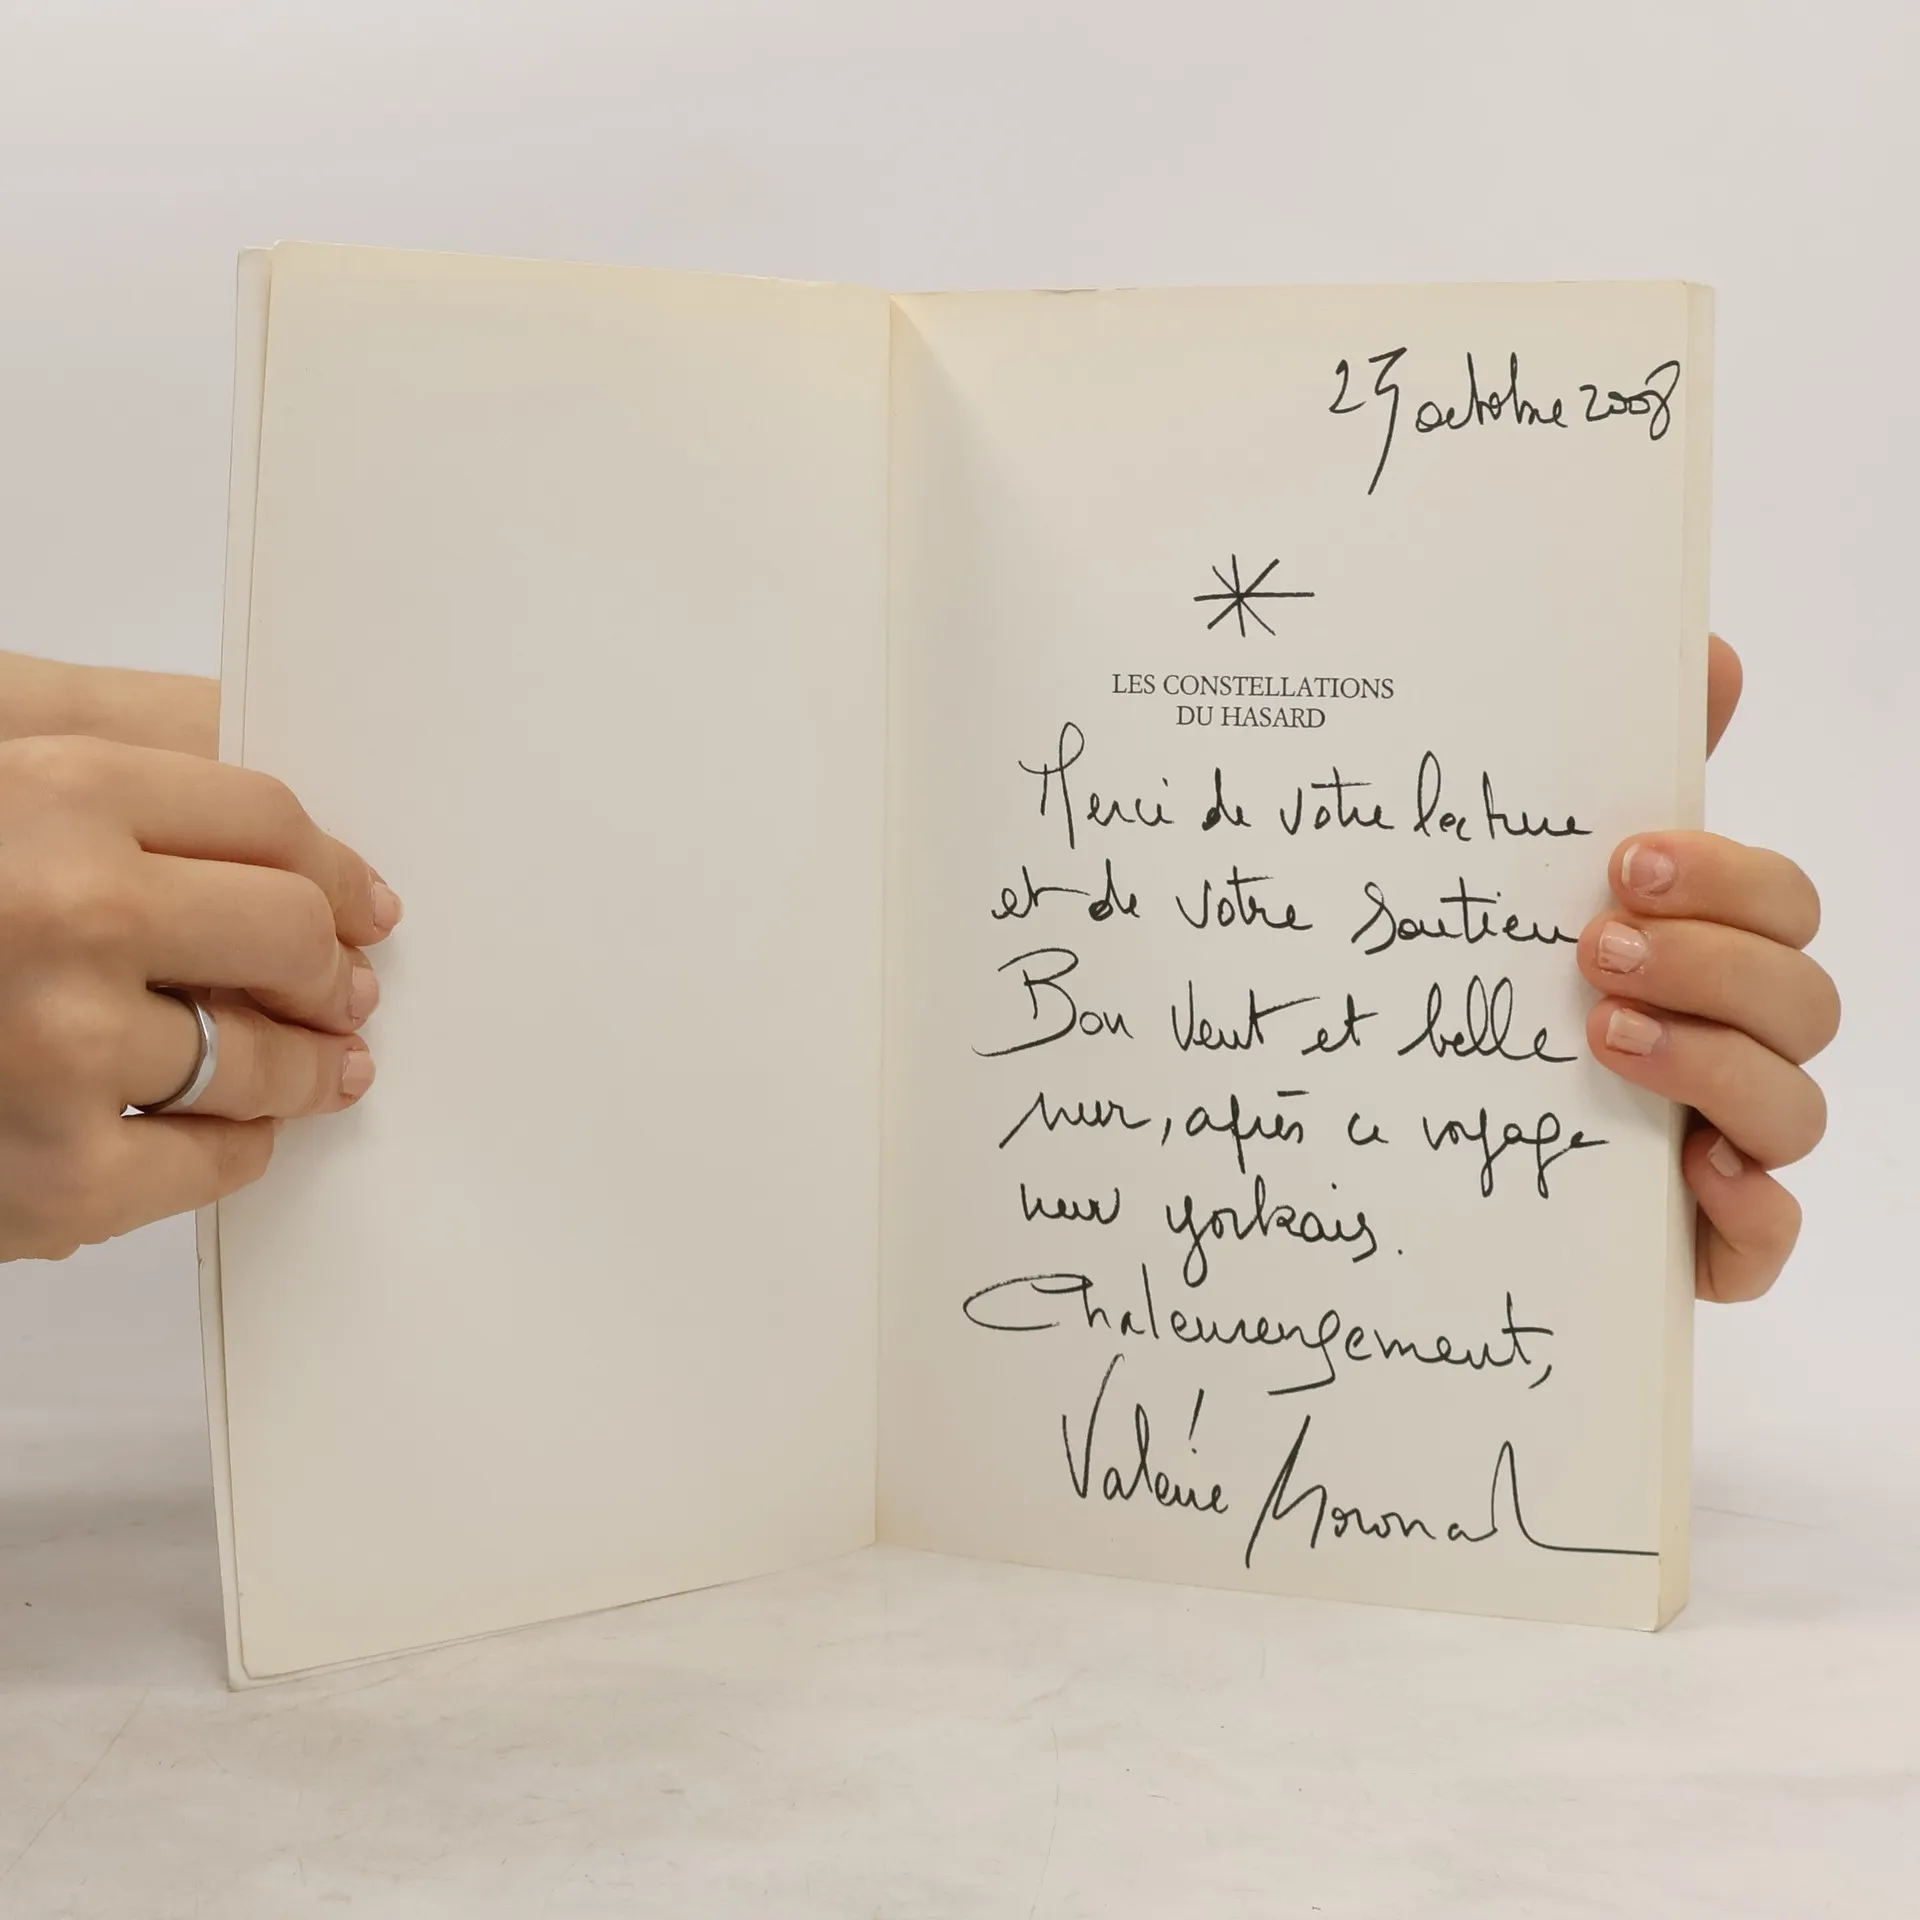 octobre 2008
LES CONSTELLATIONS
DU HASARD
Merci de votre lecture
et de votre soutien
Bon vent et belle
mer, après ce voyage
new yorkais.
Chaleureusement,
Valérie Boronad